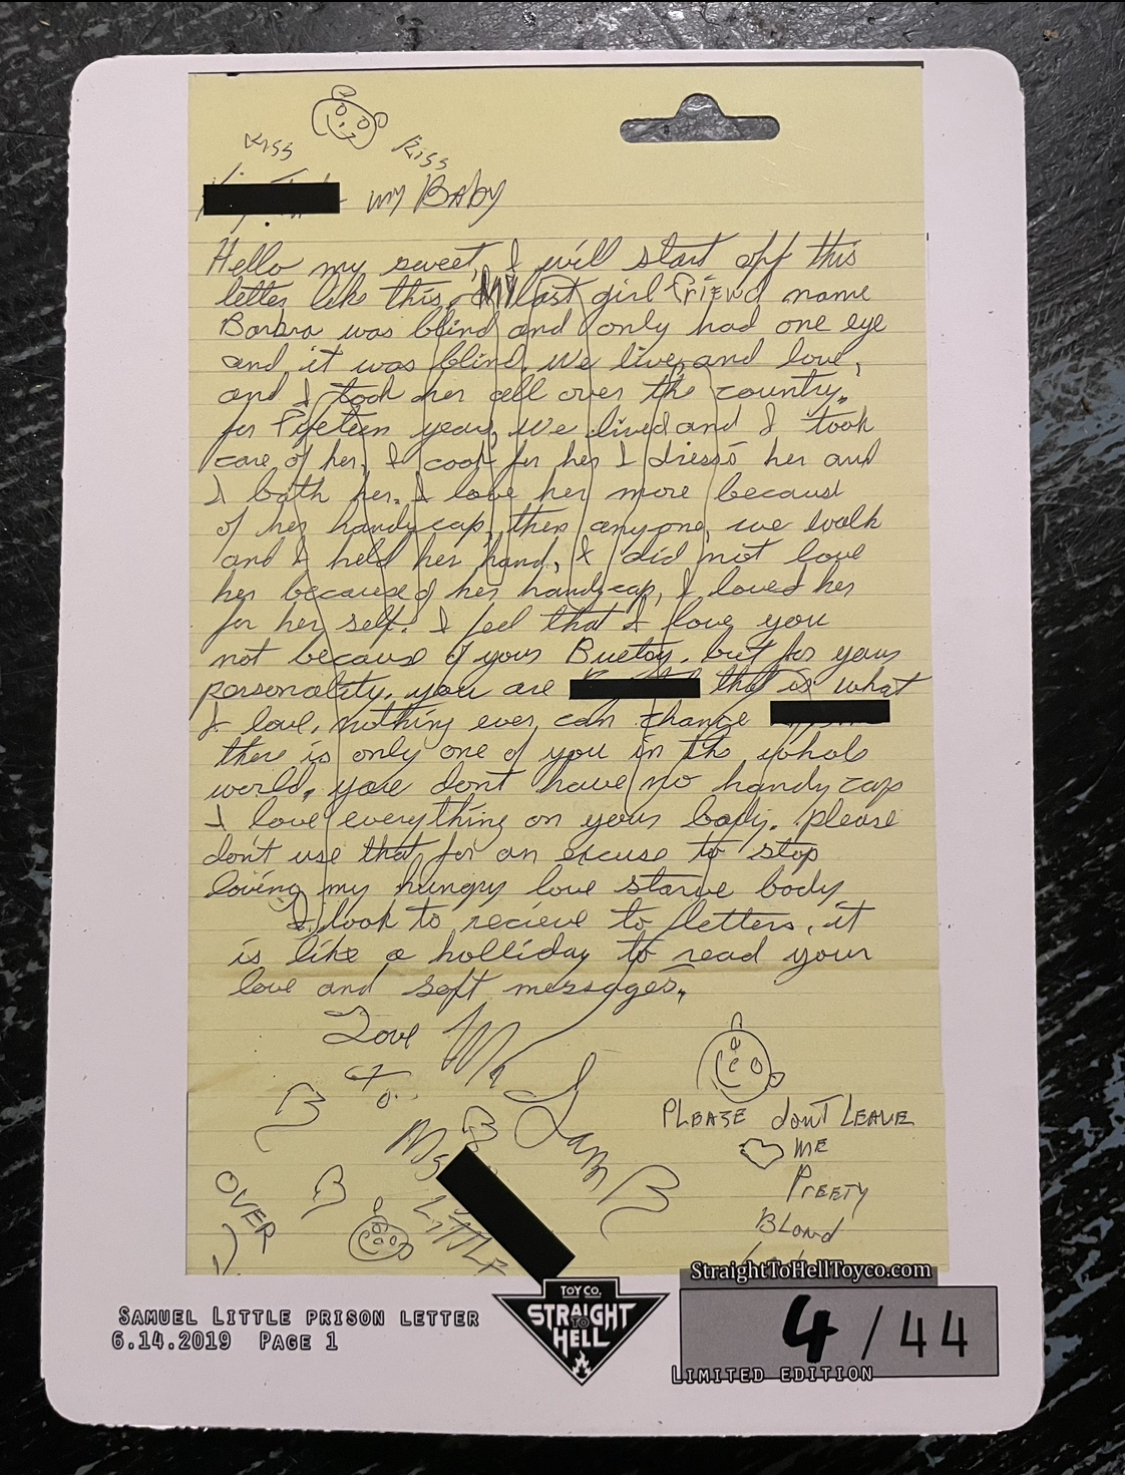 Kiss
Kiss
my BABY
Hello my sweet, I will start off this
letter like this, MY last girl FRIEND name
Barbra was blind and only had one eye
and it was blind. We live and love,
and I took her all over the country.
for Fifeteen years, We lived and I took
care of her, I cook for her I dress her and
I bath her. I love her more because
of her handycap, then anyone, we walk
and I held her hand, I did not love
her because of her handycap, I loved her
for her self. I feel that I love you
not because of your Buetoy. but for your
personality. you are that is what
I love, nothing ever can change
there is only one of you in the whole
world. you dont have no handy cap
I love everything on your body. please
don't use that for an excuse to stop
loving my hungry love starve body
I look to recieve to letters, it
is like a holliday to read your
love and soft messages.
Love Mr
Sam
Ms
LITTLE
OVER
PLEASE donT LEAVE
ME
PREETY
BLOND
SAMUEL LITTLE PRISON LETTER
6.14.2019 PAGE 1
TOY CO.
STRAIGHT
TO
HELL
StraightToHellToyco.com
4/44
LIMITED EDITION